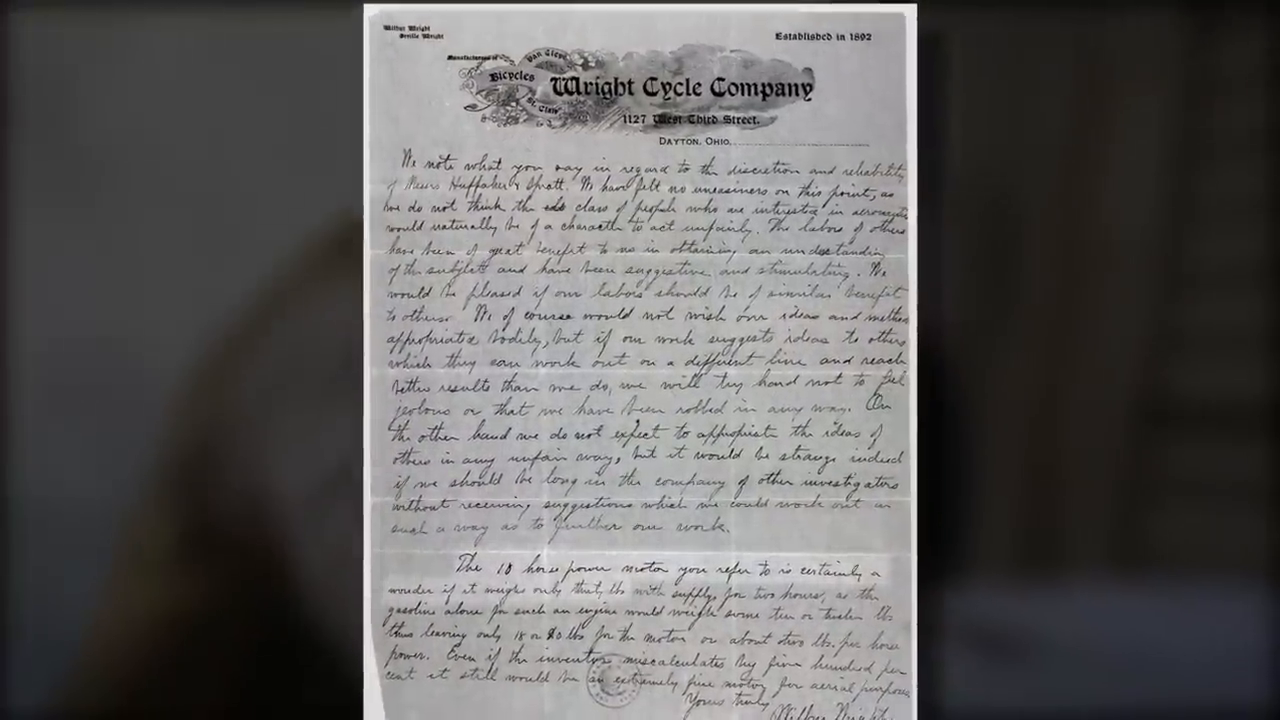 Wilbur Wright
Orville Wright
Established in 1892
Manufacturers of
Van Cleve
Bicycles
St. Clair
Wright Cycle Company
1127 West Third Street.
DAYTON, OHIO,
We note what you say in regard to the discretion and reliability
of Messrs Huffaker & Spratt. We have felt no uneasiness on this point, as
we do not think the class of people who are interested in aeronautics
would naturally be of a character to act unfairly. The labors of others
have been of great benefit to us in obtaining an understanding
of the subject and have been suggestive and stimulating. We
would be pleased if our labors should be of similar benefit
to others. We of course would not wish our ideas and methods
appropriated bodily, but if our work suggests ideas to others
which they can work out on a different line and reach
better results than we do, we will try hard not to feel
jealous or that we have been robbed in any way. On
the other hand we do not expect to appropriate the ideas of
others in any unfair way, but it would be strange indeed
if we should be long in the company of other investigators
without receiving suggestions which we could work out in
such a way as to further our work.
The 10 horse power motor you refer to is certainly a
wonder if it weighs only thirty lbs with supply for two hours, as the
gasoline alone for such an engine would weigh some ten or twelve lbs
thus leaving only 18 or 20 lbs for the motor or about two lbs. per horse
power. Even if the inventor miscalculates by five hundred per
cent it still would be an extremely fine motor for aerial purposes.
Yours truly
Wilbur Wright